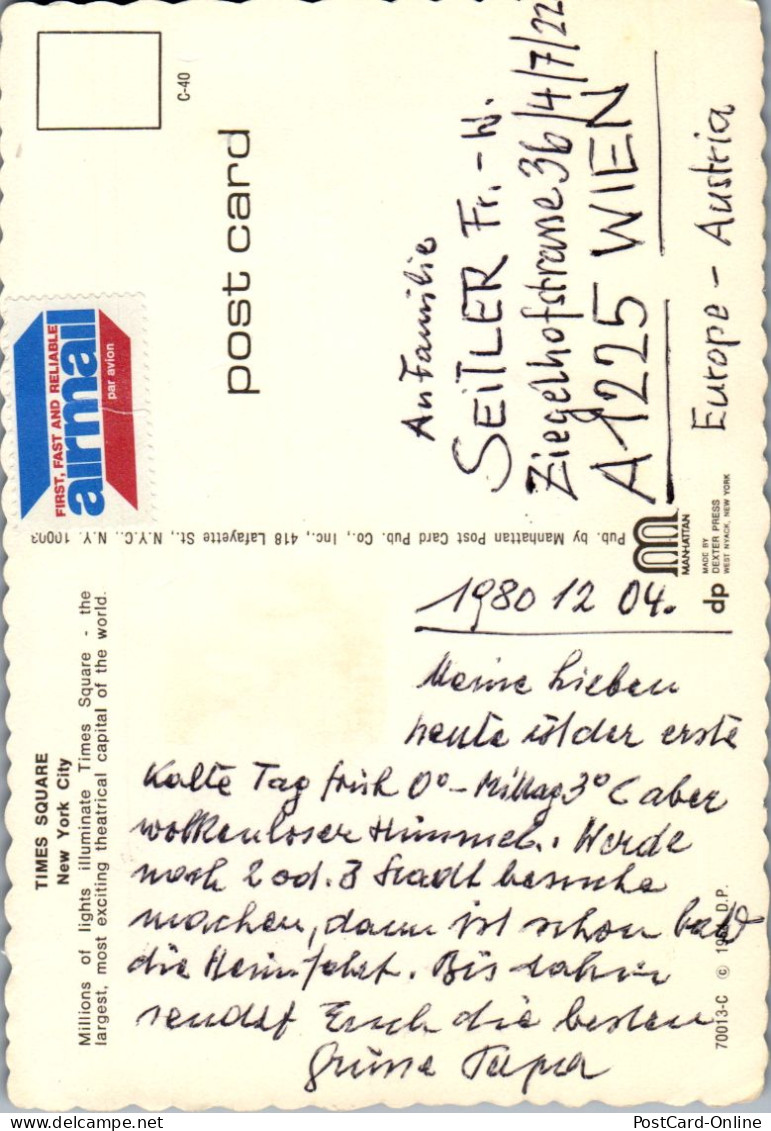 TIMES SQUARE
New York City
Millions of lights illuminate Times Square - the
largest, most exciting theatrical capital of the world.
1980 12 04.
Meine Lieben
heute ist der erste
Kalte Tag früh 0° - Mittag 3° C aber
wolkenloser Himmel. Werde
noch 2 od. 3 Stadt besuche
machen, dann ist schon bald
die Heimfahrt. Bis dahin
sendet Euch die besten
Grüsse Papa
70013-C © D.P.
Pub. by Manhattan Post Card Pub. Co., Inc., 418 Lafayette St., N.Y.C., N.Y. 10003
MANHATTAN
dp
MADE BY
DEXTER PRESS
WEST NYACK, NEW YORK
C-40
post card
FIRST, FAST AND RELIABLE
airmail
par avion
An Familie
SEITLER Fr. - W.
Ziegelhofstrasse 36/4/7/22
A 1225 WIEN
Europe - Austria
PostCard-Online